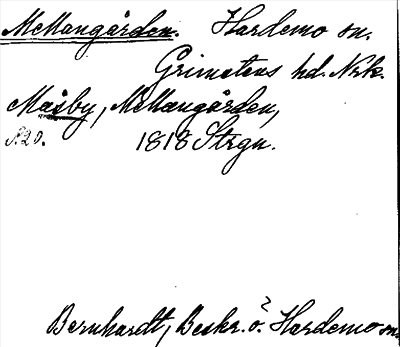 Mellangården. Hardemo sn.
Grimstens hd. Nrk.
Måsby, Mellangården,
S. 20. 1818 Strgn.
Bernhardt, Beskr. ö. Hardemo sn.